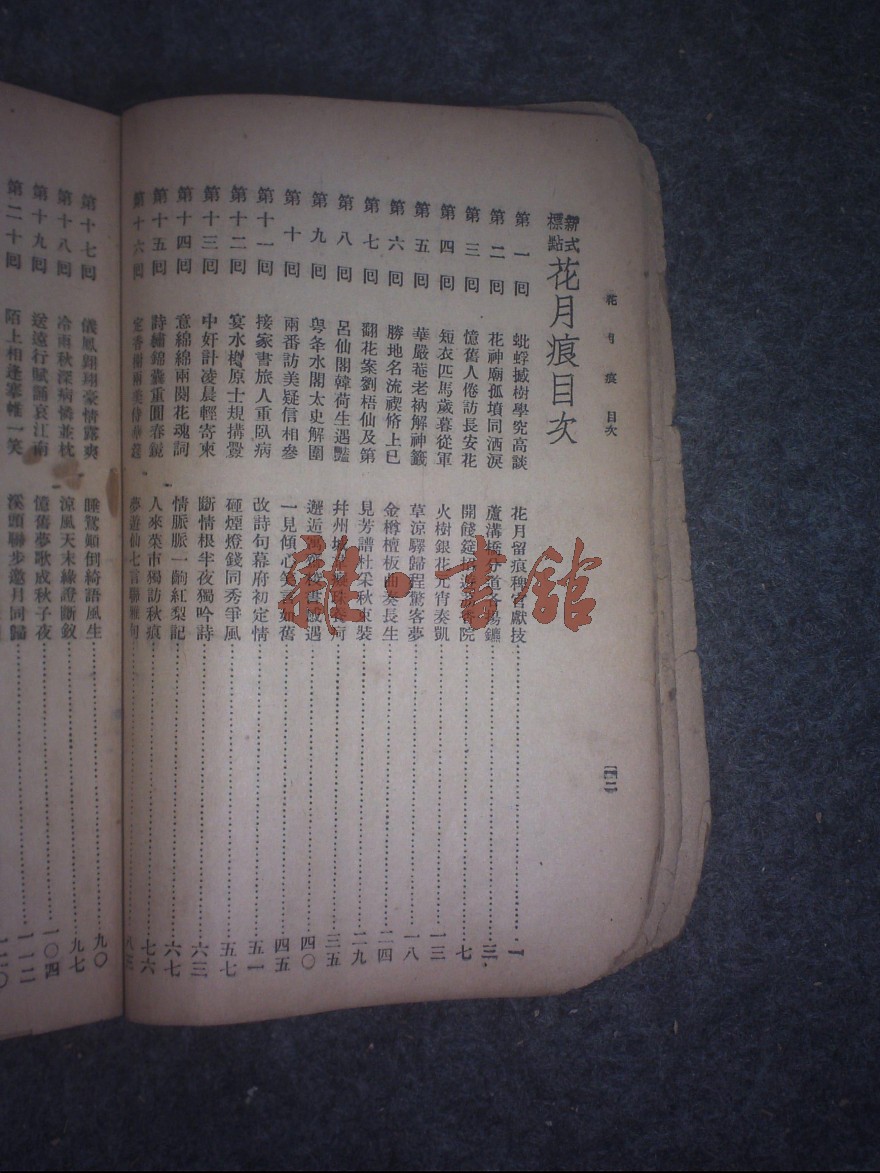 花月痕 目次
新式標點花月痕目次
第一回 蚍蜉撼樹學究高談 花月留痕稗官獻技 一
第二回 花神廟孤墳同洒淚 蘆溝橋分道各揚鑣 三
第三回 憶舊人倦訪長安花 開餞筵招遊 院 七
第四回 短衣匹馬歲暮從軍 火樹銀花元宵奏凱 一三
第五回 華嚴菴老衲解神籤 草涼驛歸程驚客夢 一八
第六回 勝地名流禊脩上巳 金樽檀板曲奏長生 二四
第七回 翻花案劉梧仙及第 見芳譜杜采秋束裝 二九
第八回 呂仙閣韓荷生遇豔 幷州城 河 三五
第九回 粤夆水閣太史解圍 邂逅 遇 四〇
第十回 兩番訪美疑信相參 一見傾心笑言如舊 四五
第十一回 接家書旅人重臥病 改詩句幕府初定情 五一
第十二回 宴水榭原士規搆釁 砸煙燈錢同秀爭風 五七
第十三回 中奸計凌晨輕寄柬 斷情根半夜獨吟詩 六三
第十四回 意綿綿兩闋花魂詞 情脈脈一齣紅梨記 六七
第十五回 詩繡錦囊重圓春鏡 人來菜市獨訪秋痕 七六
第十六回 定香榭兩美侍華筵 夢遊仙七言聯雅句 八三
第十七回 儀鳳翺翔豪情露爽 睡鴛顛倒綺語風生 九〇
第十八回 冷雨秋深病憐並枕 涼風天末緣證斷釵 九七
第十九回 送遠行賦誦哀江南 憶舊夢歌成秋子夜 一〇四
第二十回 陌上相逢搴帷一笑 溪頭聯步邀月同歸 一一二
雜·書館